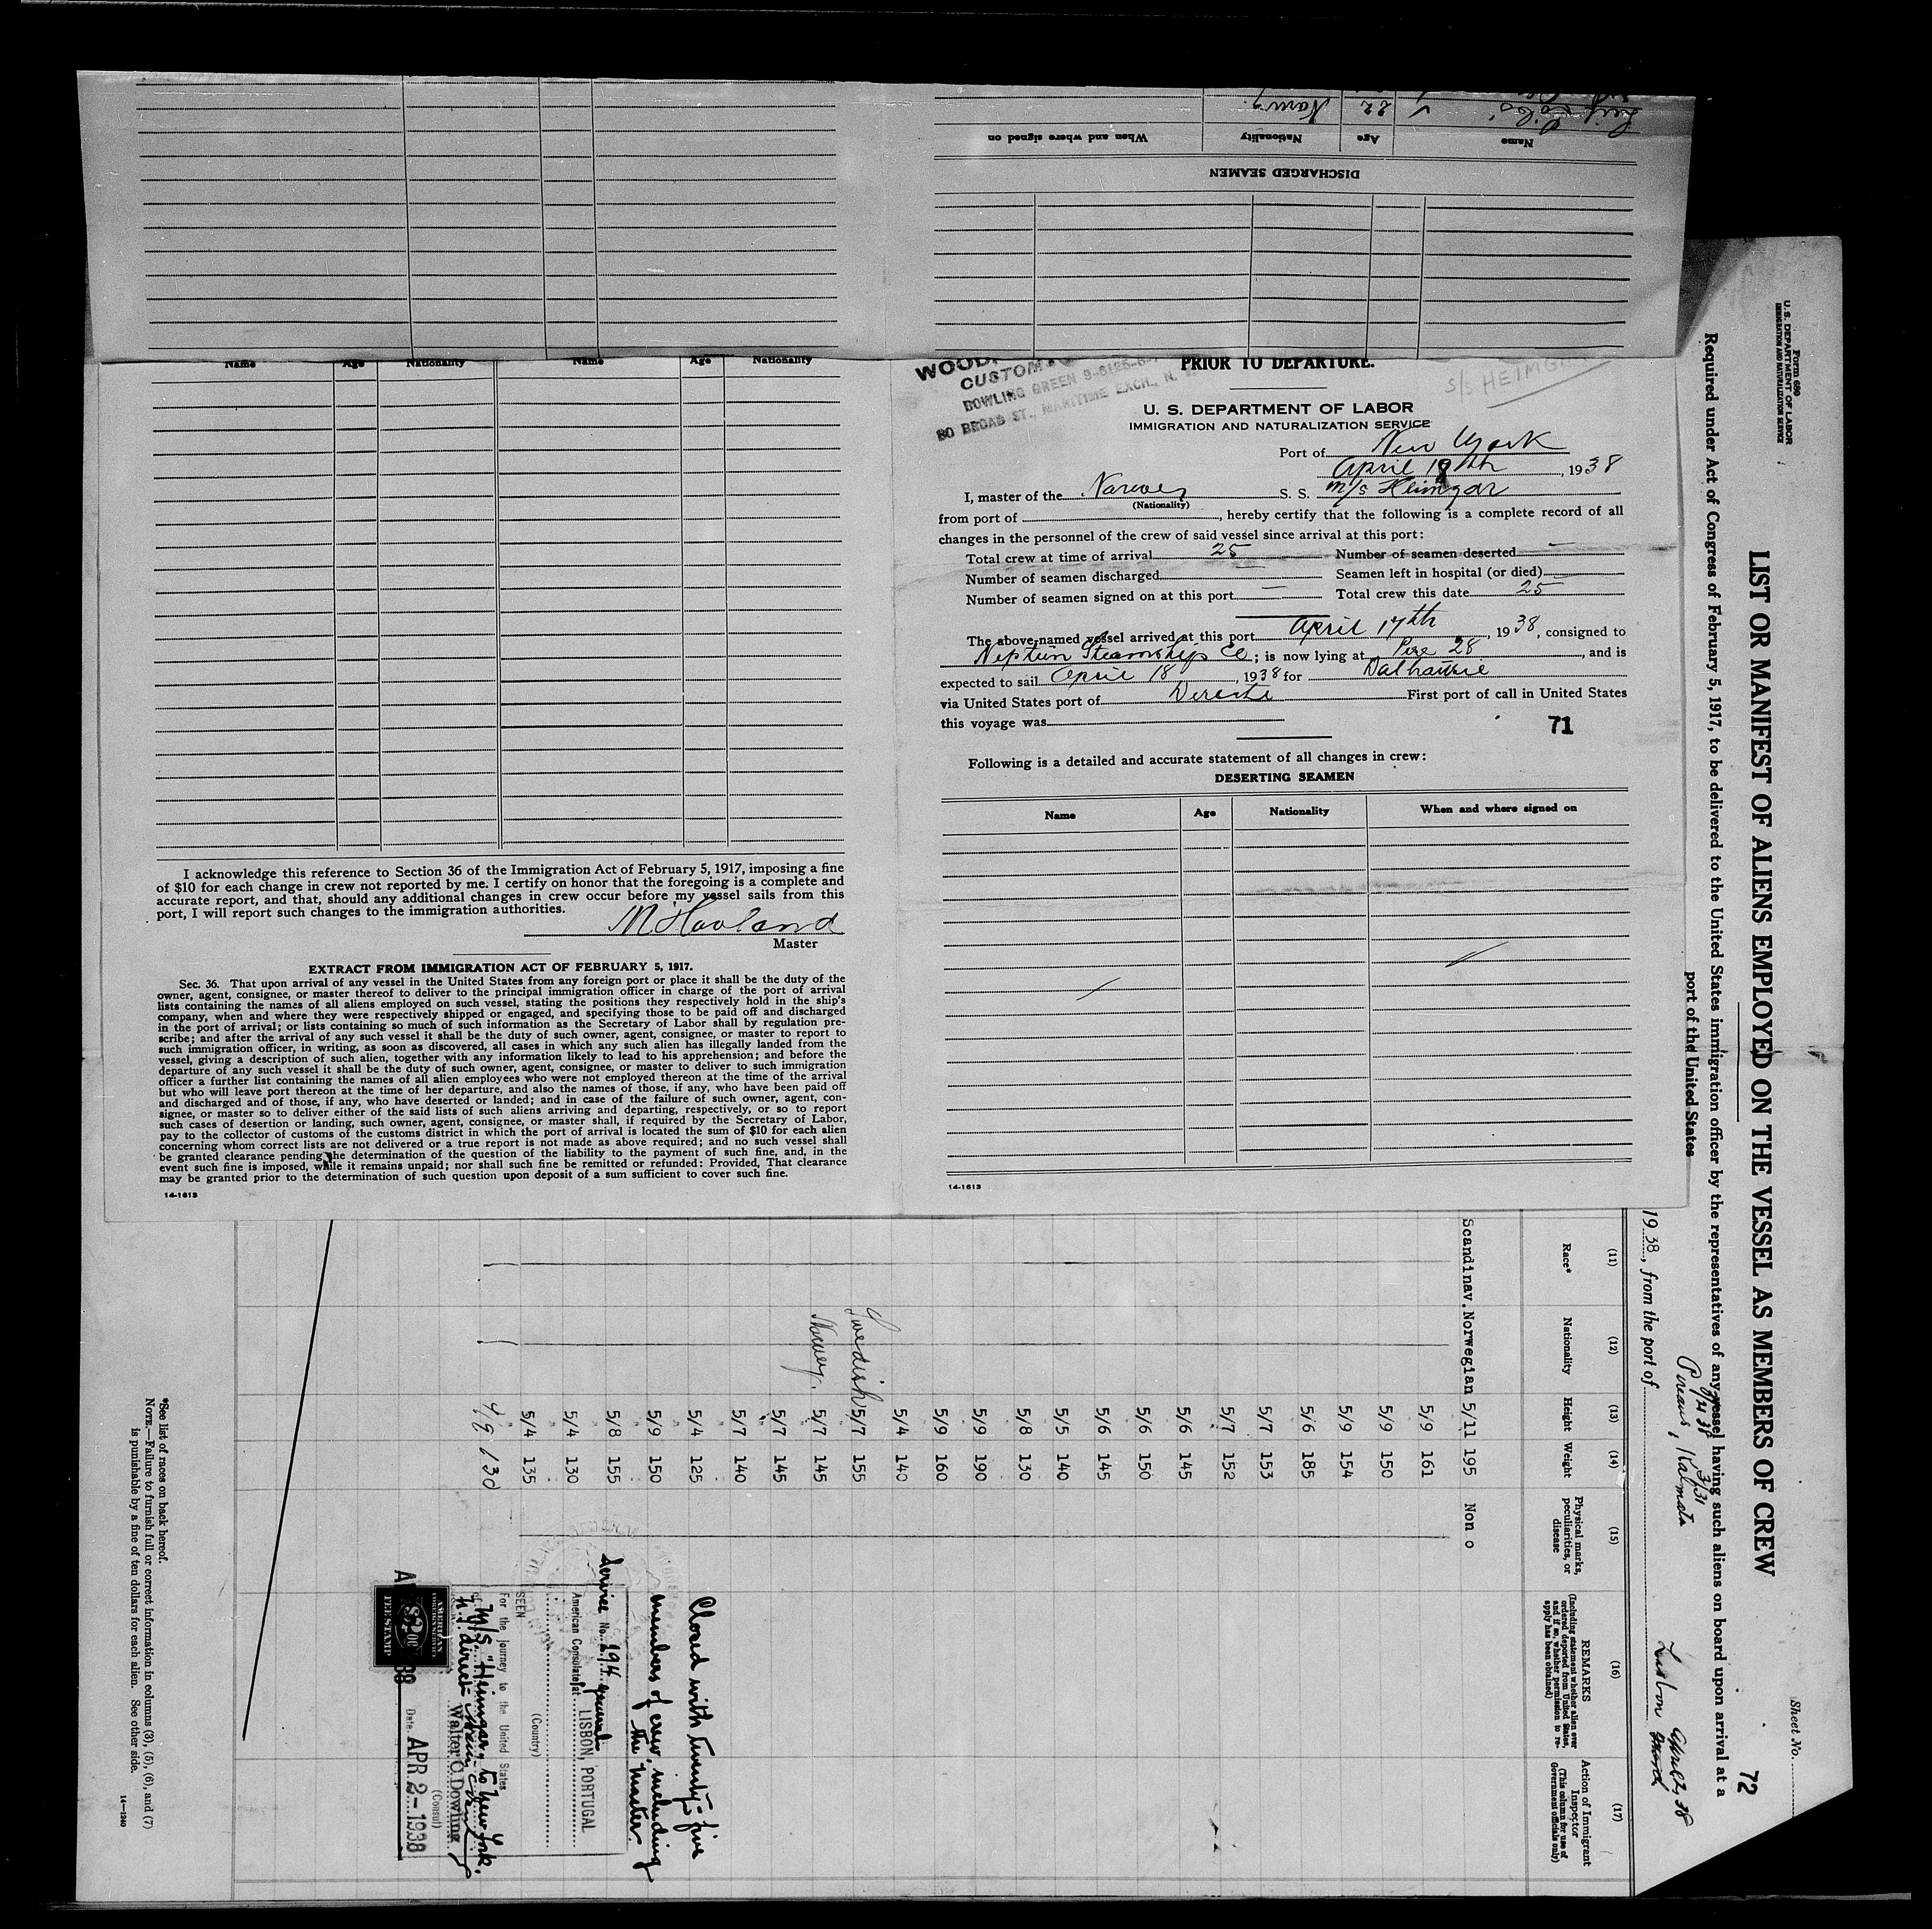 Name Age Nationality When and where signed on
22 Norwy.
DISCHARGED SEAMEN
Name Age Nationality Name Age Nationality
I acknowledge this reference to Section 36 of the Immigration Act of February 5, 1917, imposing a fine
of $10 for each change in crew not reported by me. I certify on honor that the foregoing is a complete and
accurate report, and that, should any additional changes in crew occur before my vessel sails from this
port, I will report such changes to the immigration authorities.
M Hovland
Master
EXTRACT FROM IMMIGRATION ACT OF FEBRUARY 5, 1917.
Sec. 36. That upon arrival of any vessel in the United States from any foreign port or place it shall be the duty of the
owner, agent, consignee, or master thereof to deliver to the principal immigration officer in charge of the port of arrival
lists containing the names of all aliens employed on such vessel, stating the positions they respectively hold in the ship's
company, when and where they were respectively shipped or engaged, and specifying those to be paid off and discharged
in the port of arrival; or lists containing so much of such information as the Secretary of Labor shall by regulation pre-
scribe; and after the arrival of any such vessel it shall be the duty of such owner, agent, consignee, or master to report to
such immigration officer, in writing, as soon as discovered, all cases in which any such alien has illegally landed from the
vessel, giving a description of such alien, together with any information likely to lead to his apprehension; and before the
departure of any such vessel it shall be the duty of such owner, agent, consignee, or master to deliver to such immigration
officer a further list containing the names of all alien employees who were not employed thereon at the time of the arrival
but who will leave port thereon at the time of her departure, and also the names of those, if any, who have been paid off
and discharged and of those, if any, who have deserted or landed; and in case of the failure of such owner, agent, con-
signee, or master so to deliver either of the said lists of such aliens arriving and departing, respectively, or so to report
such cases of desertion or landing, such owner, agent, consignee, or master shall, if required by the Secretary of Labor,
pay to the collector of customs of the customs district in which the port of arrival is located the sum of $10 for each alien
concerning whom correct lists are not delivered or a true report is not made as above required; and no such vessel shall
be granted clearance pending the determination of the question of the liability to the payment of such fine, and, in the
event such fine is imposed, while it remains unpaid; nor shall such fine be remitted or refunded: Provided, That clearance
may be granted prior to the determination of such question upon deposit of a sum sufficient to cover such fine.
14-1613
CUSTOM
BOWLING GREEN 9-6125-6-
80 BROAD ST., MARITIME EXCH., N.
PRIOR TO DEPARTURE.
S/S HEIMGAR
U. S. DEPARTMENT OF LABOR
IMMIGRATION AND NATURALIZATION SERVICE
Port of New York
April 18th, 1938
I, master of the Norway S. S. M/s Heimgar
(Nationality)
from port of , hereby certify that the following is a complete record of all
changes in the personnel of the crew of said vessel since arrival at this port:
Total crew at time of arrival 25 Number of seamen deserted —
Number of seamen discharged — Seamen left in hospital (or died) —
Number of seamen signed on at this port — Total crew this date 25
The above-named vessel arrived at this port April 17th, 1938, consigned to
Neptun Steamship Co; is now lying at Pire 28, and is
expected to sail April 18, 1938 for Dalhausie
via United States port of Derecte First port of call in United States
this voyage was
71
Following is a detailed and accurate statement of all changes in crew:
DESERTING SEAMEN
Name Age Nationality When and where signed on
14-1613
Form 689
U. S. DEPARTMENT OF LABOR
IMMIGRATION AND NATURALIZATION SERVICE
Sheet No.
72
LIST OR MANIFEST OF ALIENS EMPLOYED ON THE VESSEL AS MEMBERS OF CREW
Required under Act of Congress of February 5, 1917, to be delivered to the United States immigration officer by the representatives of any vessel having such aliens on board upon arrival at a
port of the United States
3/31
Pireaus, Kalmata
1938, from the port of Lisbon April 2, 38
(11) (12) (13) (14) (15) (16) (17)
Race* Nationality Height Weight Physical marks, peculiarities, or disease REMARKS (Including statement whether alien ever ordered deported from United States, and if so, whether permission to reapply has been obtained) Action of Immigrant Inspector (This column for use of Government officials only)
Scandinav. Norwegian 5/11 195 Non o
5/9 161
5/9 150
5/9 154
5/6 185
5/7 153
5/7 152
5/6 145
5/6 150
5/6 145
5/5 140
5/8 130
5/9 190
5/9 160
5/4 140
Swedish 5/7 155
Norway. 5/7 145
5/7 145
5/7 140
5/4 125
5/9 150
5/8 155
5/4 130
5/4 135
4/9 130
Closed with twenty-five
members of crew, including
the Master.
Service No. 294
American Consulate at LISBON, PORTUGAL
(Country)
SEEN
For the journey to the United States
M/S. "Heimgar, to New York.
Walter C. Dowling
(Consul)
Date. APR 2- 1938
AMERICAN
FEE STAMP
*See list of races on back hereof.
NOTE.—Failure to furnish full or correct information in columns (3), (5), (6), and (7)
is punishable by a fine of ten dollars for each alien. See other side.
14—1240